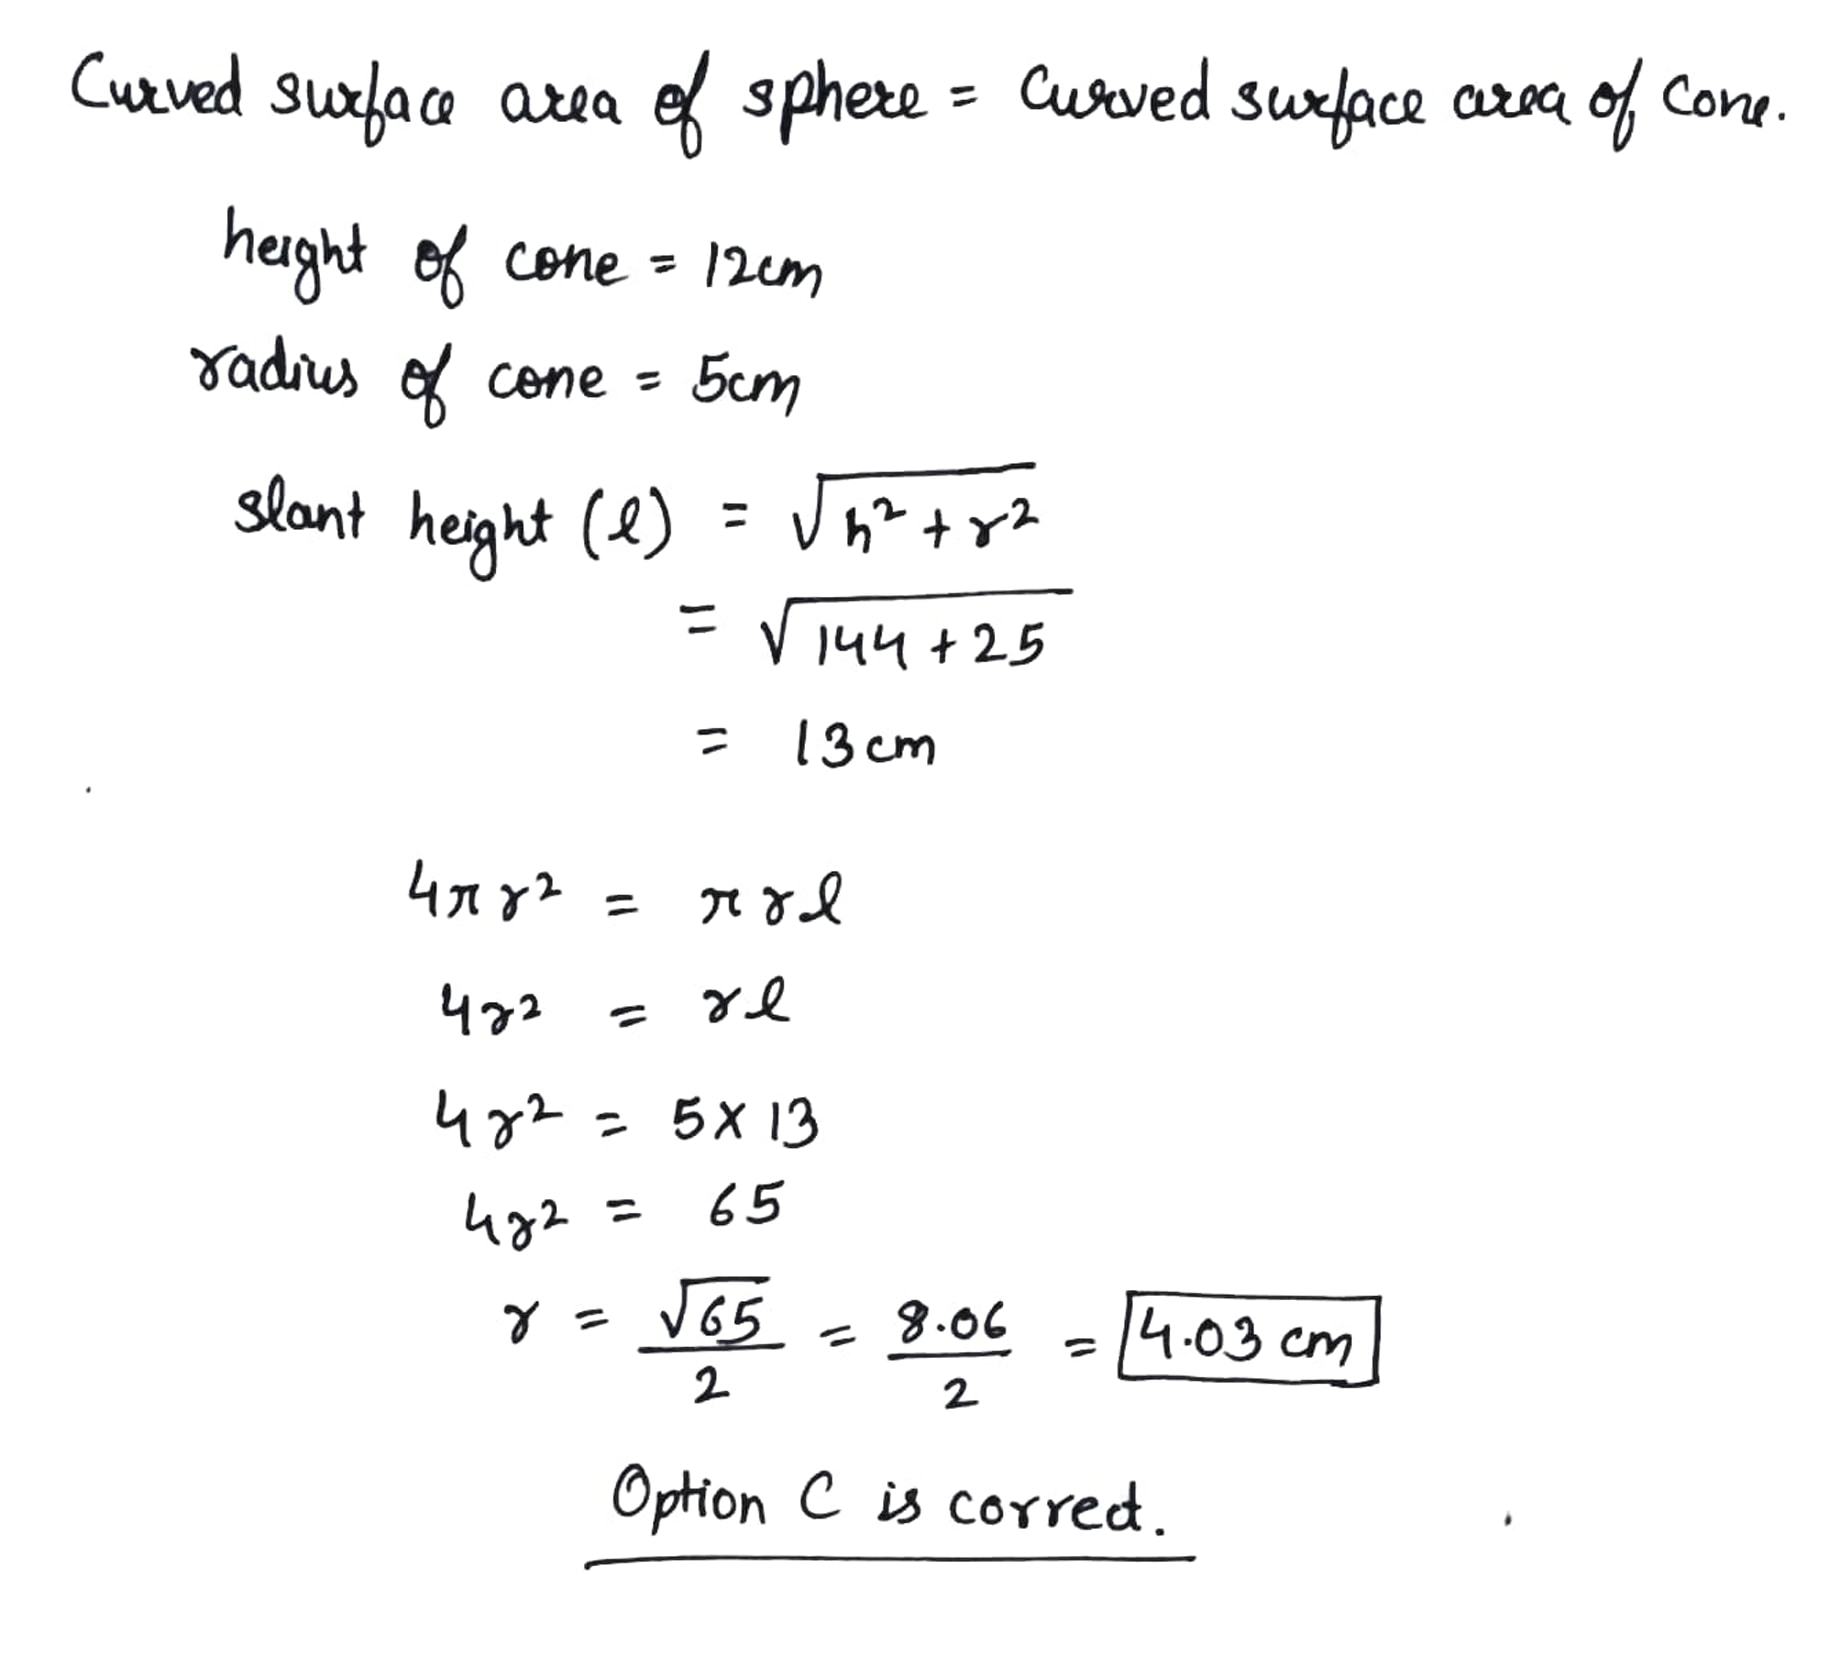 Curved surface area of sphere = Curved surface area of Cone.
height of cone = 12cm
radius of cone = 5cm
slant height (l) = √h² + r²
= √144 + 25
= 13cm
4πr² = πrl
4r² = rl
4r² = 5×13
4r² = 65
r = √65/2 = 8.06/2 = 4.03 cm
Option C is correct.